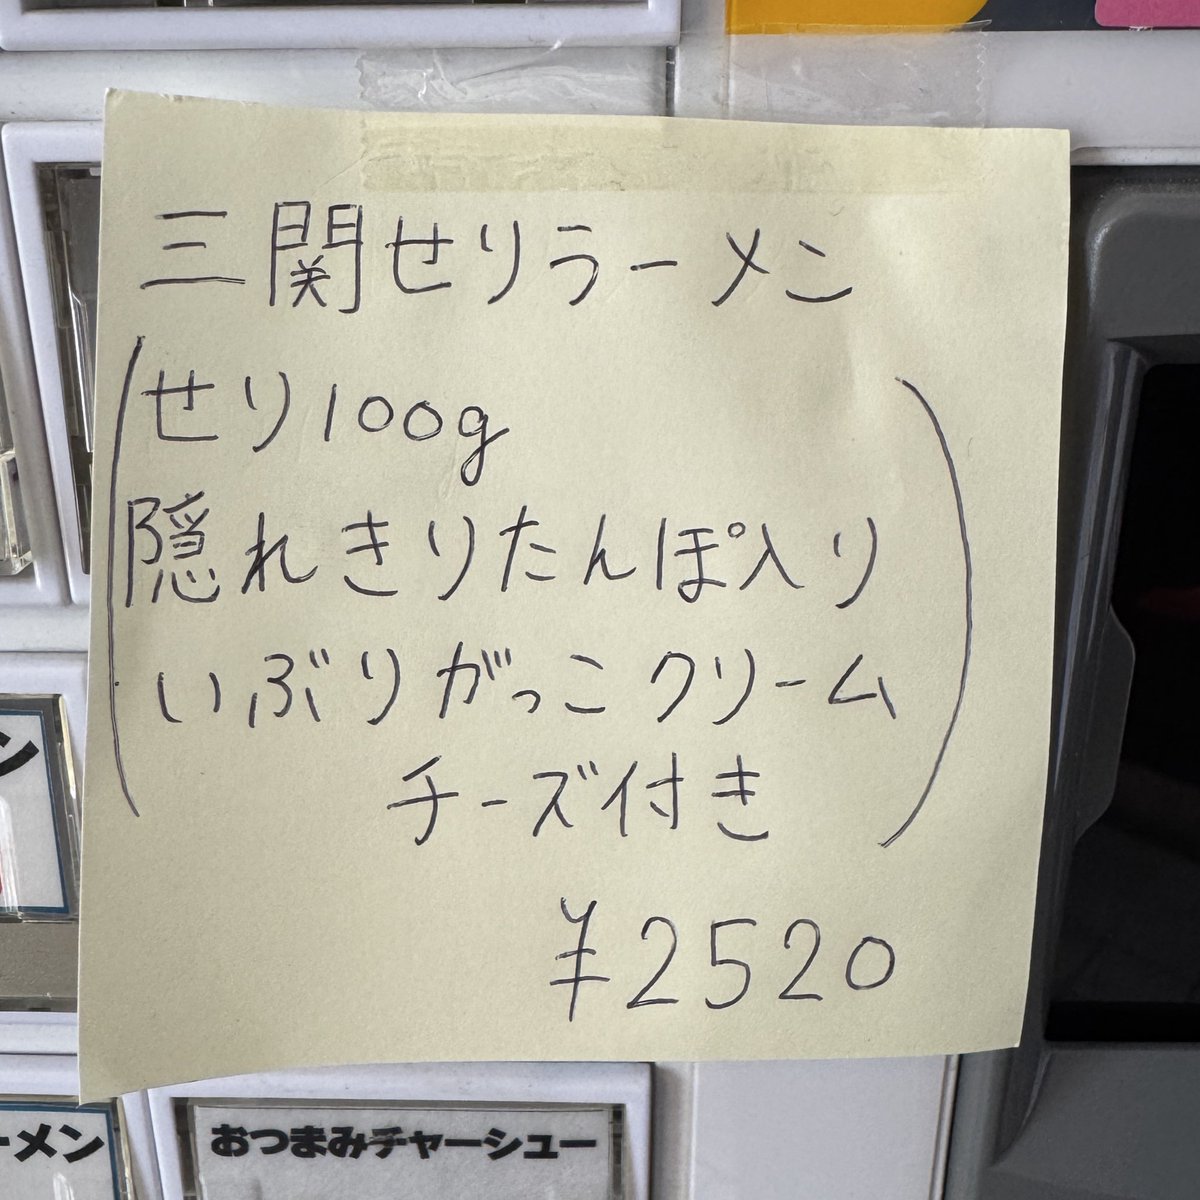 三関せりラーメン
(せり100g
隠れきりたんぽ入り
いぶりがっこクリーム
チーズ付き)
¥2520
ン
ーメン
おつまみチャーシュー